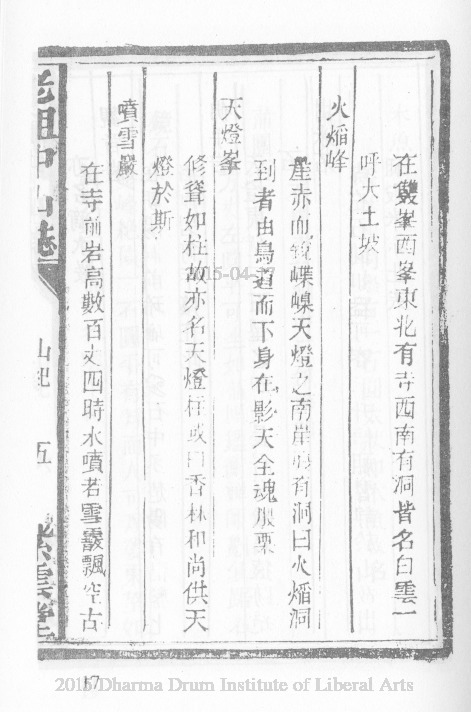 在雙峯西峯東北有寺西南有洞皆名白雲一
呼大土坡
火熖峰
崖赤而銳嵲天燈之南岸有洞曰火熖洞
到者由鳥道而下身在影天全魂股栗
天燈峯
修聳如柱故亦名天燈柱或曰香林和尚供天
燈於斯
噴雪巖
在寺前岩高數百丈四時水噴若雪霰飄空古
老祖中山誌
山
五
紫雲堂
2015-04-27
17
2015 Dharma Drum Institute of Liberal Arts